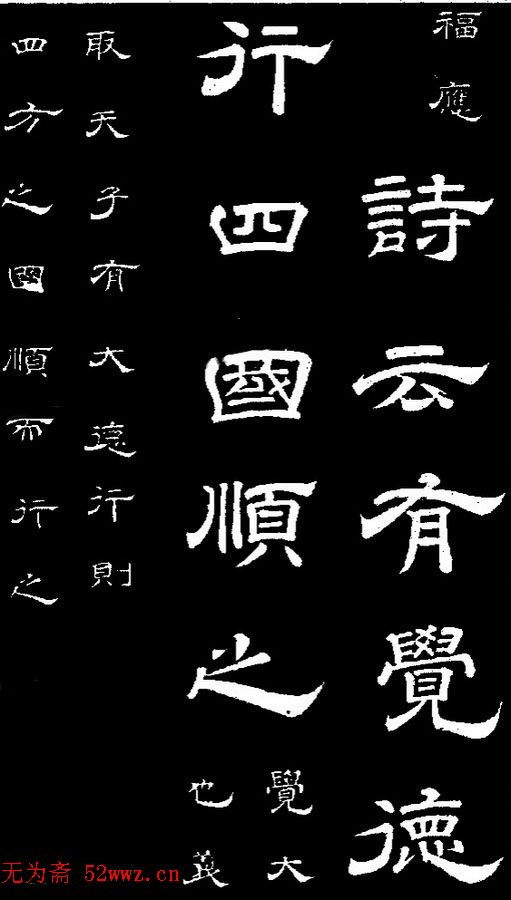 福應 詩云有覺德
行四國順之 覺大
也義
取天子有大德行則
四方之國順而行之
无为斋 52wwz.cn